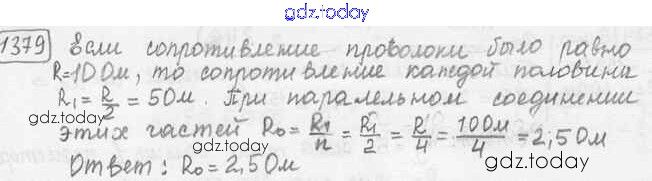 gdz.today
1379 Если сопротивление проволоки было равно
R=10Ом, то сопротивление каждой половины
R₁ = R/2 = 5Ом. При паралельном соединении
этих частей R₀ = R₁/n = R₁/2 = R/4 = 10Ом/4 = 2,5Ом
Ответ: R₀ = 2,5Ом
gdz.today
gdz.today
gdz.today
gdz.today
gdz.today